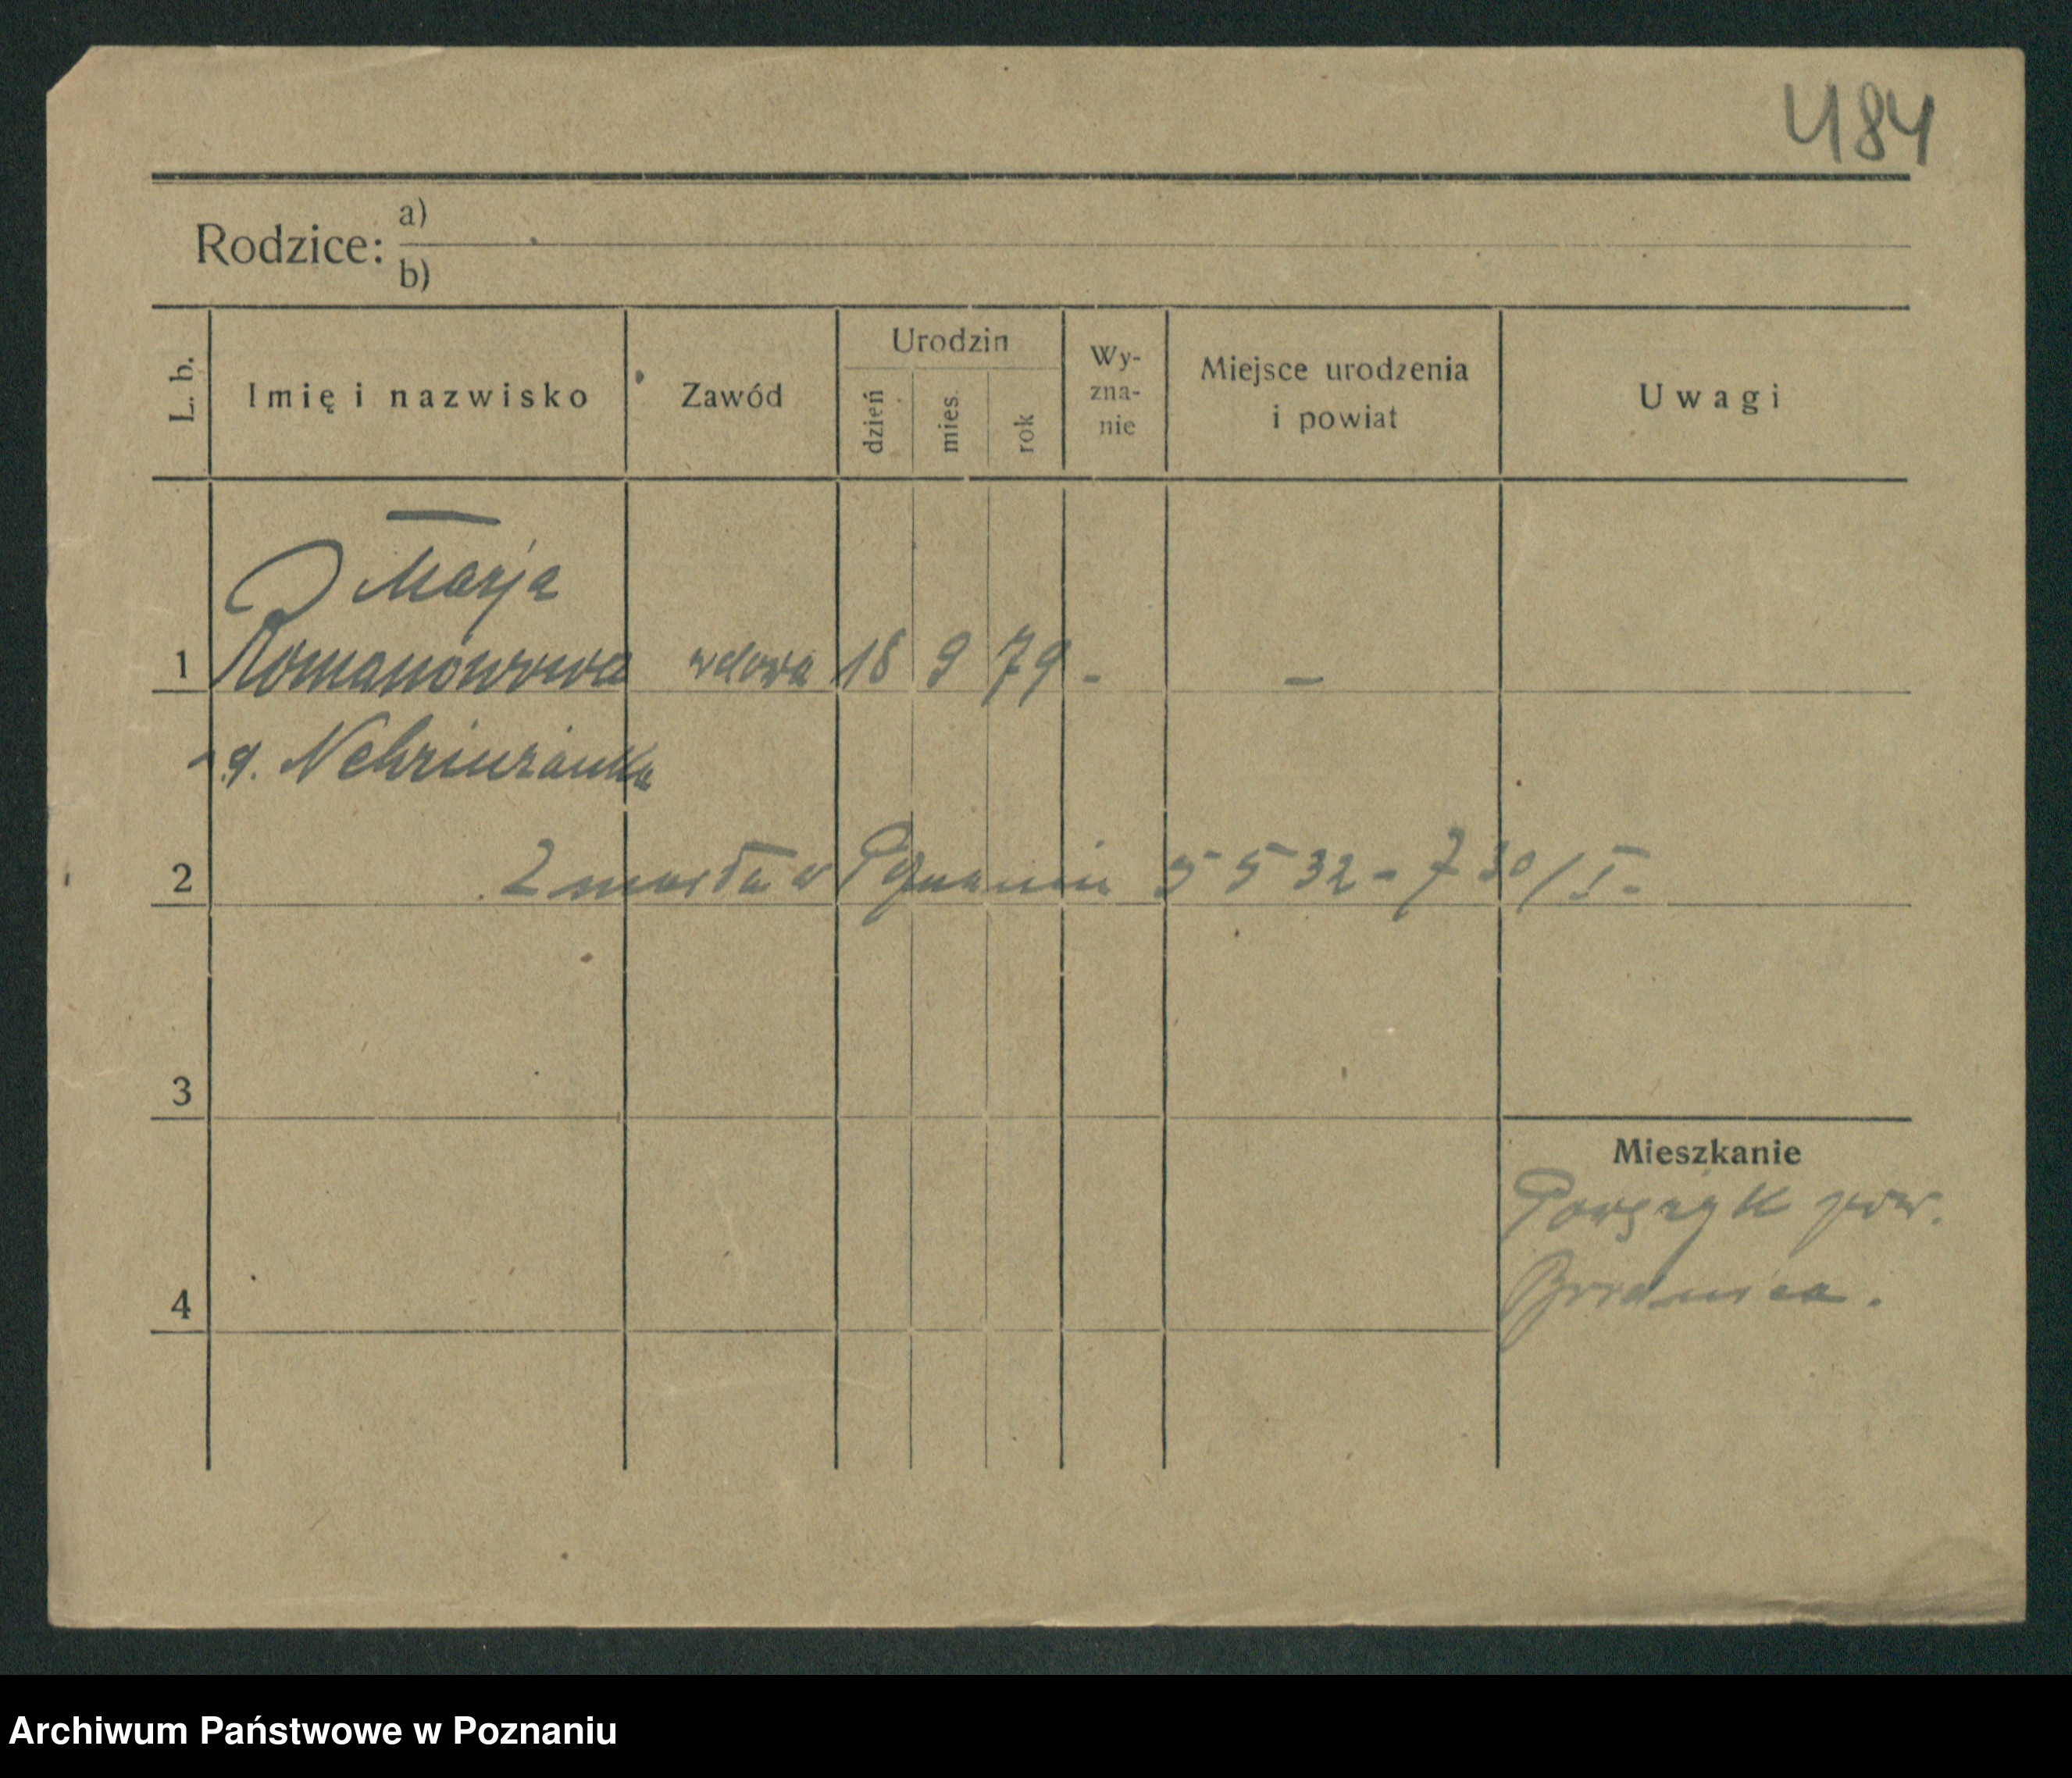 484
Rodzice: a)
b)
L. b.
Imię i nazwisko
Zawód
Urodzin
dzień
mies.
rok
Wy-
zna-
nie
Miejsce urodzenia
i powiat
Uwagi
Marja
1 Romanówowa wdowa 18 9 79 - -
2 Zmarła w Poznaniu 5 5 32 - 7 30/I-
3
Mieszkanie
pow.
4
Archiwum Państwowe w Poznaniu